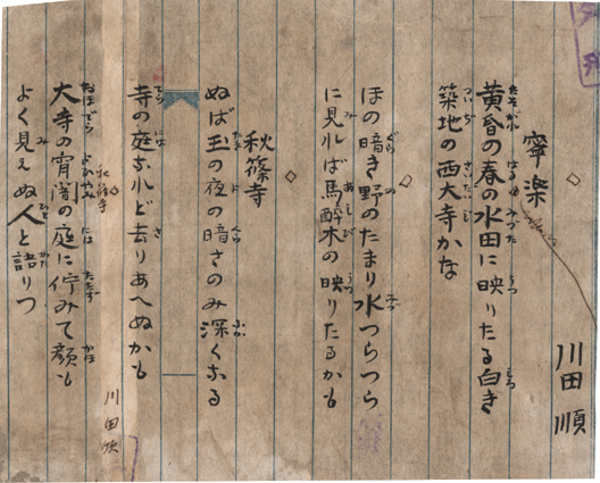 ◇
川田順
寧楽
黄昏の春の水田に映りたる白き
築地の西大寺かな
◇
ほの暗き野のたまり水つらつら
に見れば馬醉木の映りたるかも
◇
秋篠寺
ぬば玉の夜の暗さのみ深くなる
寺の庭なれど去りあへぬかも
◇
秋篠寺
川田順
大寺の宵闇の庭に佇みて顔も
よく見えぬ人と語りつ